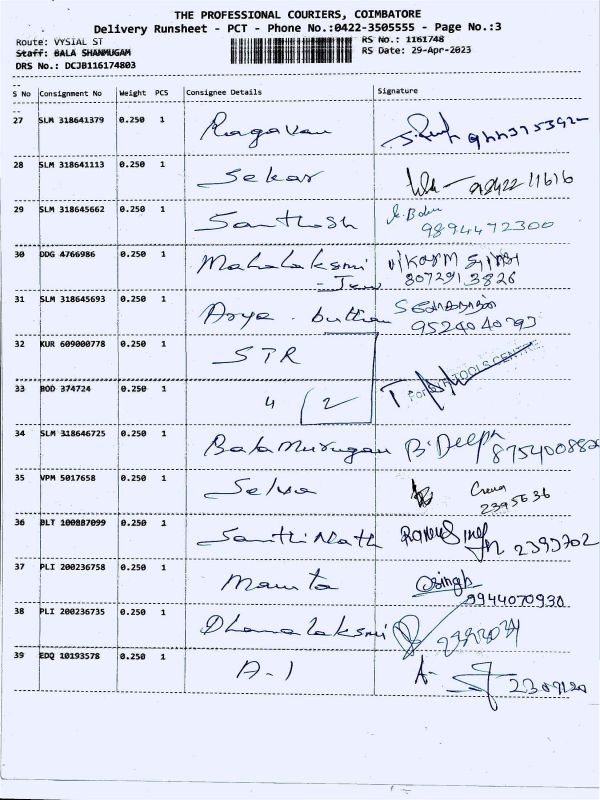 THE PROFESSIONAL COURIERS, COIMBATORE
Delivery Runsheet - PCT - Phone No.:0422-3505555 - Page No.:3
Route: VYSIAL ST RS No.: 1161748
Staff: BALA SHANMUGAM RS Date: 29-Apr-2023
DRS No.: DCJB116174803
S No Consignment No Weight PCS Consignee Details Signature
27 SLM 318641379 0.250 1 Ragavan
28 SLM 318641113 0.250 1 Sekar 98422 11616
29 SLM 318645662 0.250 1 Santhosh
9894472300
30 DDG 4766986 0.250 1 Mahalaksmi VIKRAM SINGH
- Jew 8072913826
31 SLM 318645693 0.250 1 Arya . button
9524040793
32 KUR 609000778 0.250 1 STR
TOOLS CENTRE
33 BOD 374724 0.250 1 4 2
For
34 SLM 318646725 0.250 1 BalaMurugan B. Deepa
8754008820
35 VPM 5017658 0.250 1 Selva
2395636
36 BLT 100887099 0.250 1 SanthiNath
2393702
37 PLI 200236758 0.250 1 Mamta singh
9944070930
38 PLI 200236735 0.250 1 Dhanalaksmi
39 EDQ 10193578 0.250 1 A-1 A-